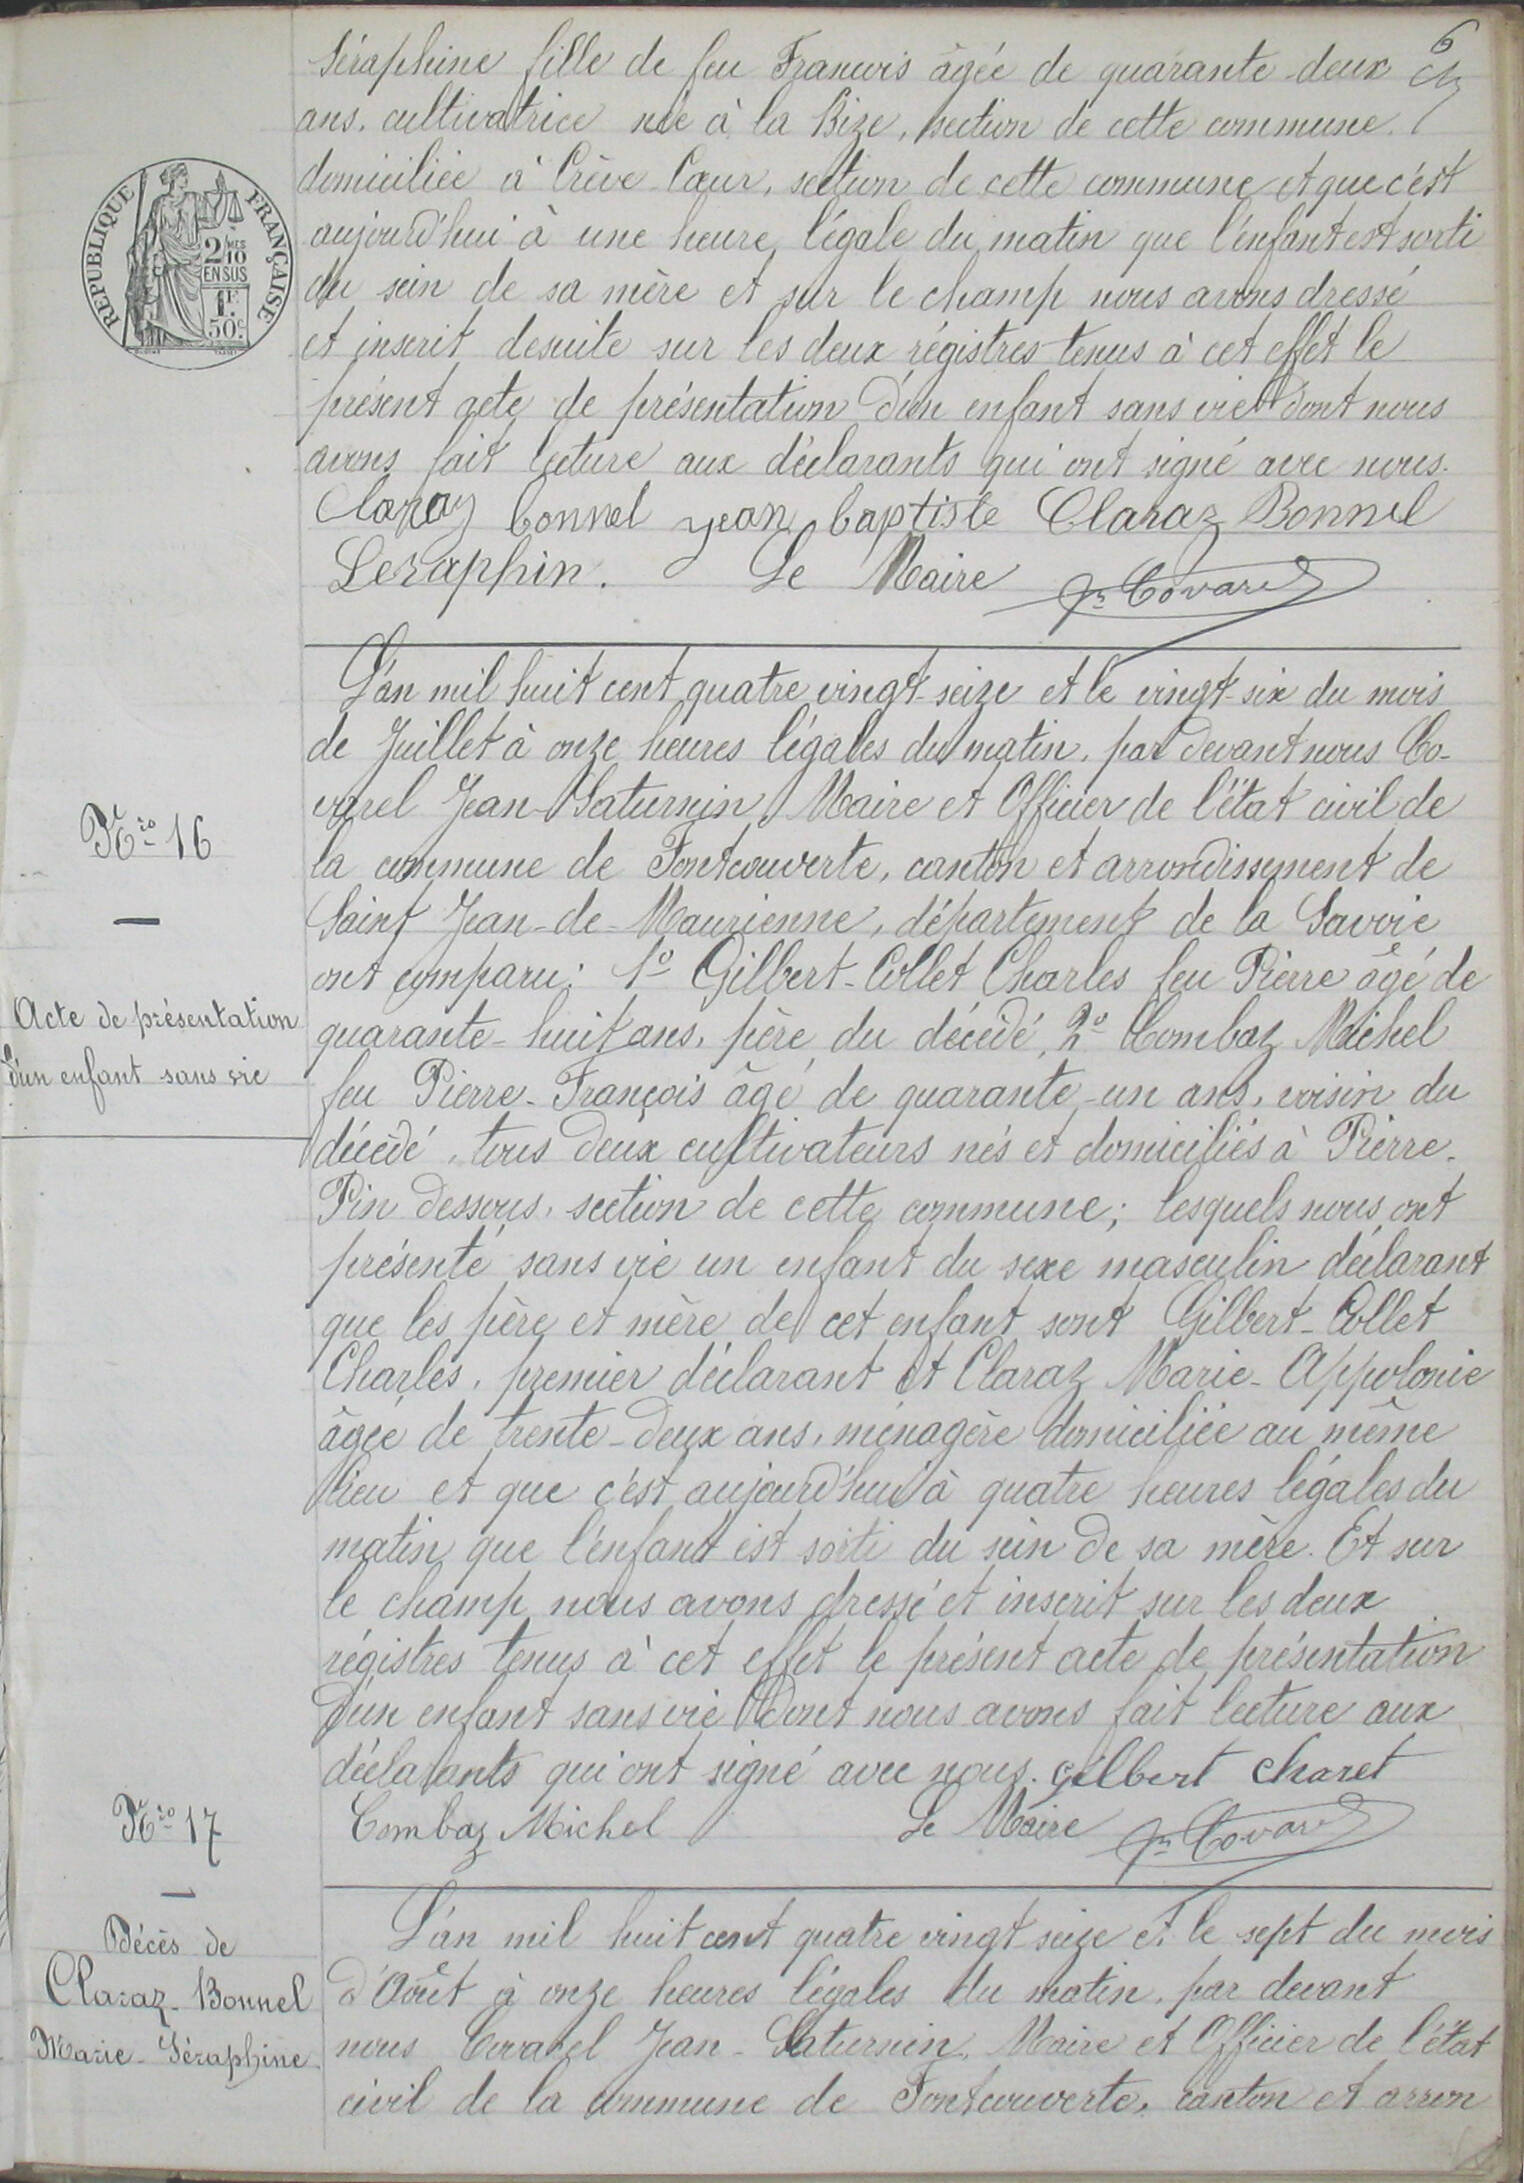 6
Séraphine fille de feu Francois âgée de quarante deux
ans. cultivatrice née à la Bize, section de cette commune.
domiciliée à Crève-Cœur, section de cette commune et que c'est
aujourd'hui à une heure légale du matin que l'enfant est sorti
du sein de sa mère et sur le champ nous avons dressé
et inscrit desuite sur les deux régistres tenus à cet effet le
présent acte de présentation d'un enfant sans vie dont nous
avons fait lecture aux déclarants qui ont signé avec nous.
Claraz bonnel jean baptiste Claraz Bonnel
Seraphin. Le Maire Jn Covarel
REPUBLIQUE FRANÇAISE
2/10 MES
EN SUS
1F.
50c.
Nro 16
Acte de présentation
d'un enfant sans vie
L'an mil huit cent quatre vingt-seize et le vingt-six du mois
de Juillet à onze heures légales du matin. par devant nous Co-
varel Jean-Saturnin, Maire et Officier de l'état civil de
la commune de Fontcouverte, canton et arrondissement de
Saint Jean-de-Maurienne, département de la Savoie
ont comparu: 1o Gilbert-Collet Charles feu Pierre âgé de
quarante-huit ans, père du décédé, 2o Combaz Michel
feu Pierre-François âgé de quarante-un ans, voisin du
décédé, tous deux cultivateurs nés et domiciliés à Pierre-
Pin dessous, section de cette commune; lesquels nous ont
présenté sans vie un enfant du sexe masculin déclarant
que les père et mère de cet enfant sont Gilbert-Collet
Charles, premier déclarant et Claraz Marie-Appolonie
âgée de trente-deux ans, ménagère domiciliée au même
lieu et que c'est aujourd'hui à quatre heures légales du
matin que l'enfant est sorti du sein de sa mère. Et sur
le champ nous avons dressé et inscrit sur les deux
régistres tenus à cet effet le présent acte de présentation
d'un enfant sans vie dont nous avons fait lecture aux
déclarants qui ont signé avec nous. gilbert charet
Combaz Michel Le Maire Jn Covarel
Nro 17
Décès de
Claraz-Bonnel
Marie-Séraphine.
L'an mil huit cent quatre vingt-seize et le sept du mois
d'Août à onze heures légales du matin, par devant
nous Covarel Jean-Saturnin, Maire et Officier de l'état
civil de la commune de Fontcouverte, canton et arron